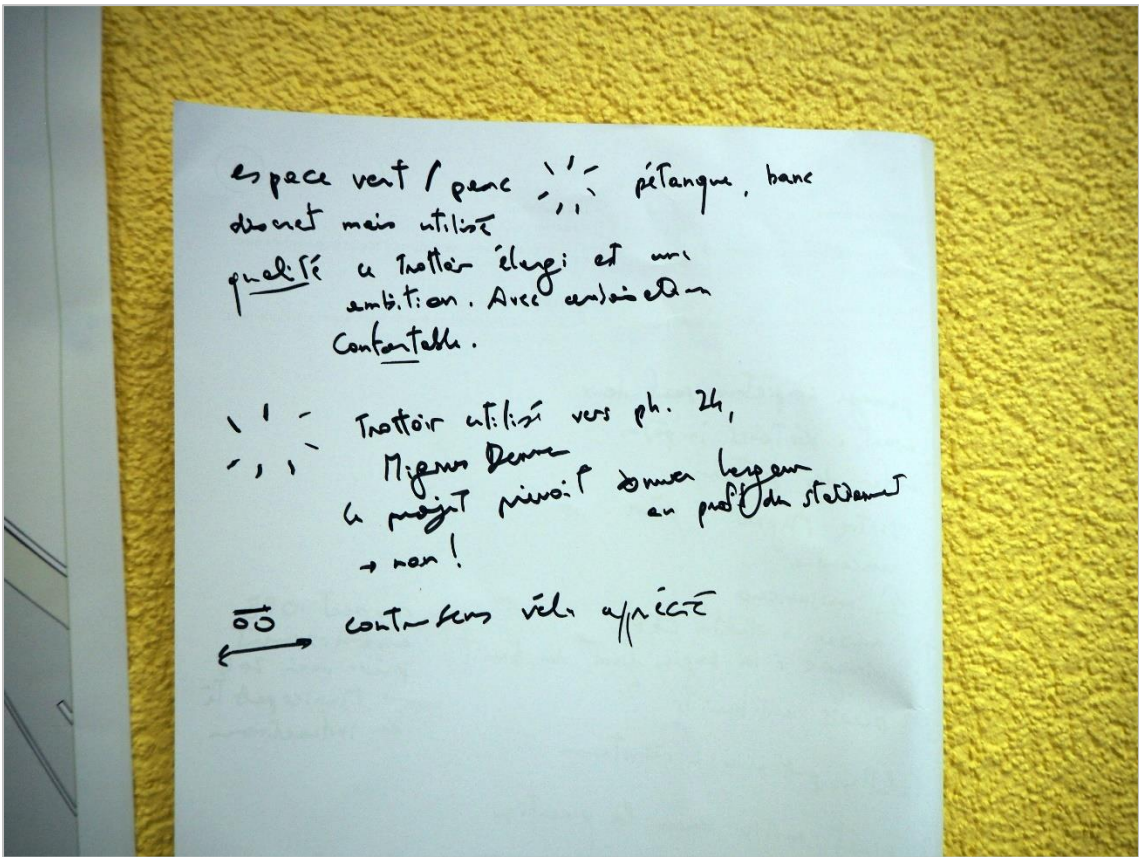 espace vert / parc pétanque, banc
discret mais utilisé
qualité ce trottoir élargi est une
ambition. Avec
Confortable.
Trottoir utilisé vers ph. 24,
Migros
Le projet prévoit donner largeur
au profit du stationnement
→ non !
contresens vélo apprécié